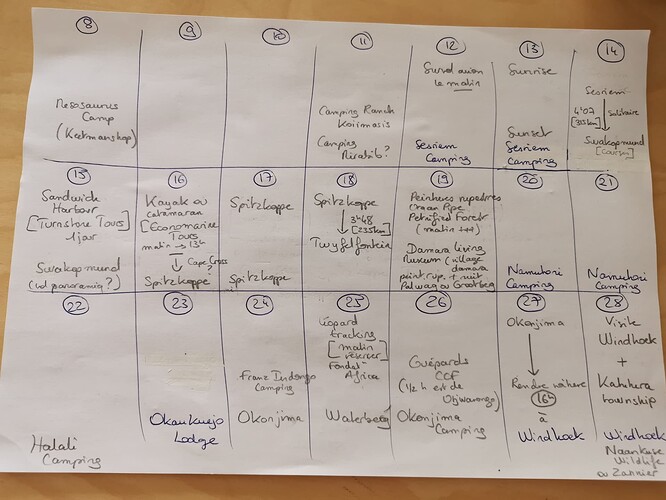 8
Mesosaurus
Camp
(Keetmanshop)
9
10
11
Camping Ranch
Koiimasis
Camping
Mirabib?
12
Survol avion
le matin
Sesriem
Camping
13
Sunrise
Sunset
Sesriem
Camping
14
Sesriem
4h07
[315km]
Solitaire
Swakopmund
15
Sandwich
Harbour
[Turnstone Tours]
1 jour
Swakopmund
(vol panoramiq?)
16
Kayak ou
catamaran
[Economarine
Tours
matin → 13h
Cape Cross
?
Spitzkoppe
17
Spitzkoppe
Spitzkoppe
18
Spitzkoppe
3h48
[235km]
Twyfelfontein
19
Peintures rupestres
Organ Pipe
Petrified Forest
(matin +++)
Damara Living
Museum (village
damara
peint rup. + nuit
Palmwag ou Grootberg
20
Namutoni
Camping
21
Namutoni
Camping
22
Halali
Camping
23
Okaukuejo
Lodge
24
Franz Indongo
Camping
Okonjima
25
Léopard
tracking
[matin
réserver
Fondat°
Africa
Waterberg
26
Guépards
CCF
(1/2 h est de
Otjiwarongo)
Okonjima
Camping
27
Okonjima
Rendre voiture
16h
à
Windhoek
28
Visite
Windhoek
+
Katutura
township
Windhoek
Naankuse
Wildlife
ou Zannier